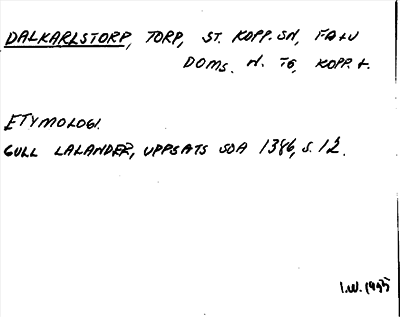 DALKARLSTORP, TORP, ST. KOPP. SN, FALU
DOMS. N. TG, KOPP. L.
ETYMOLOGI.
GULL LALANDER, UPPSATS SOA 1386, S. 12.
I.W. 1995